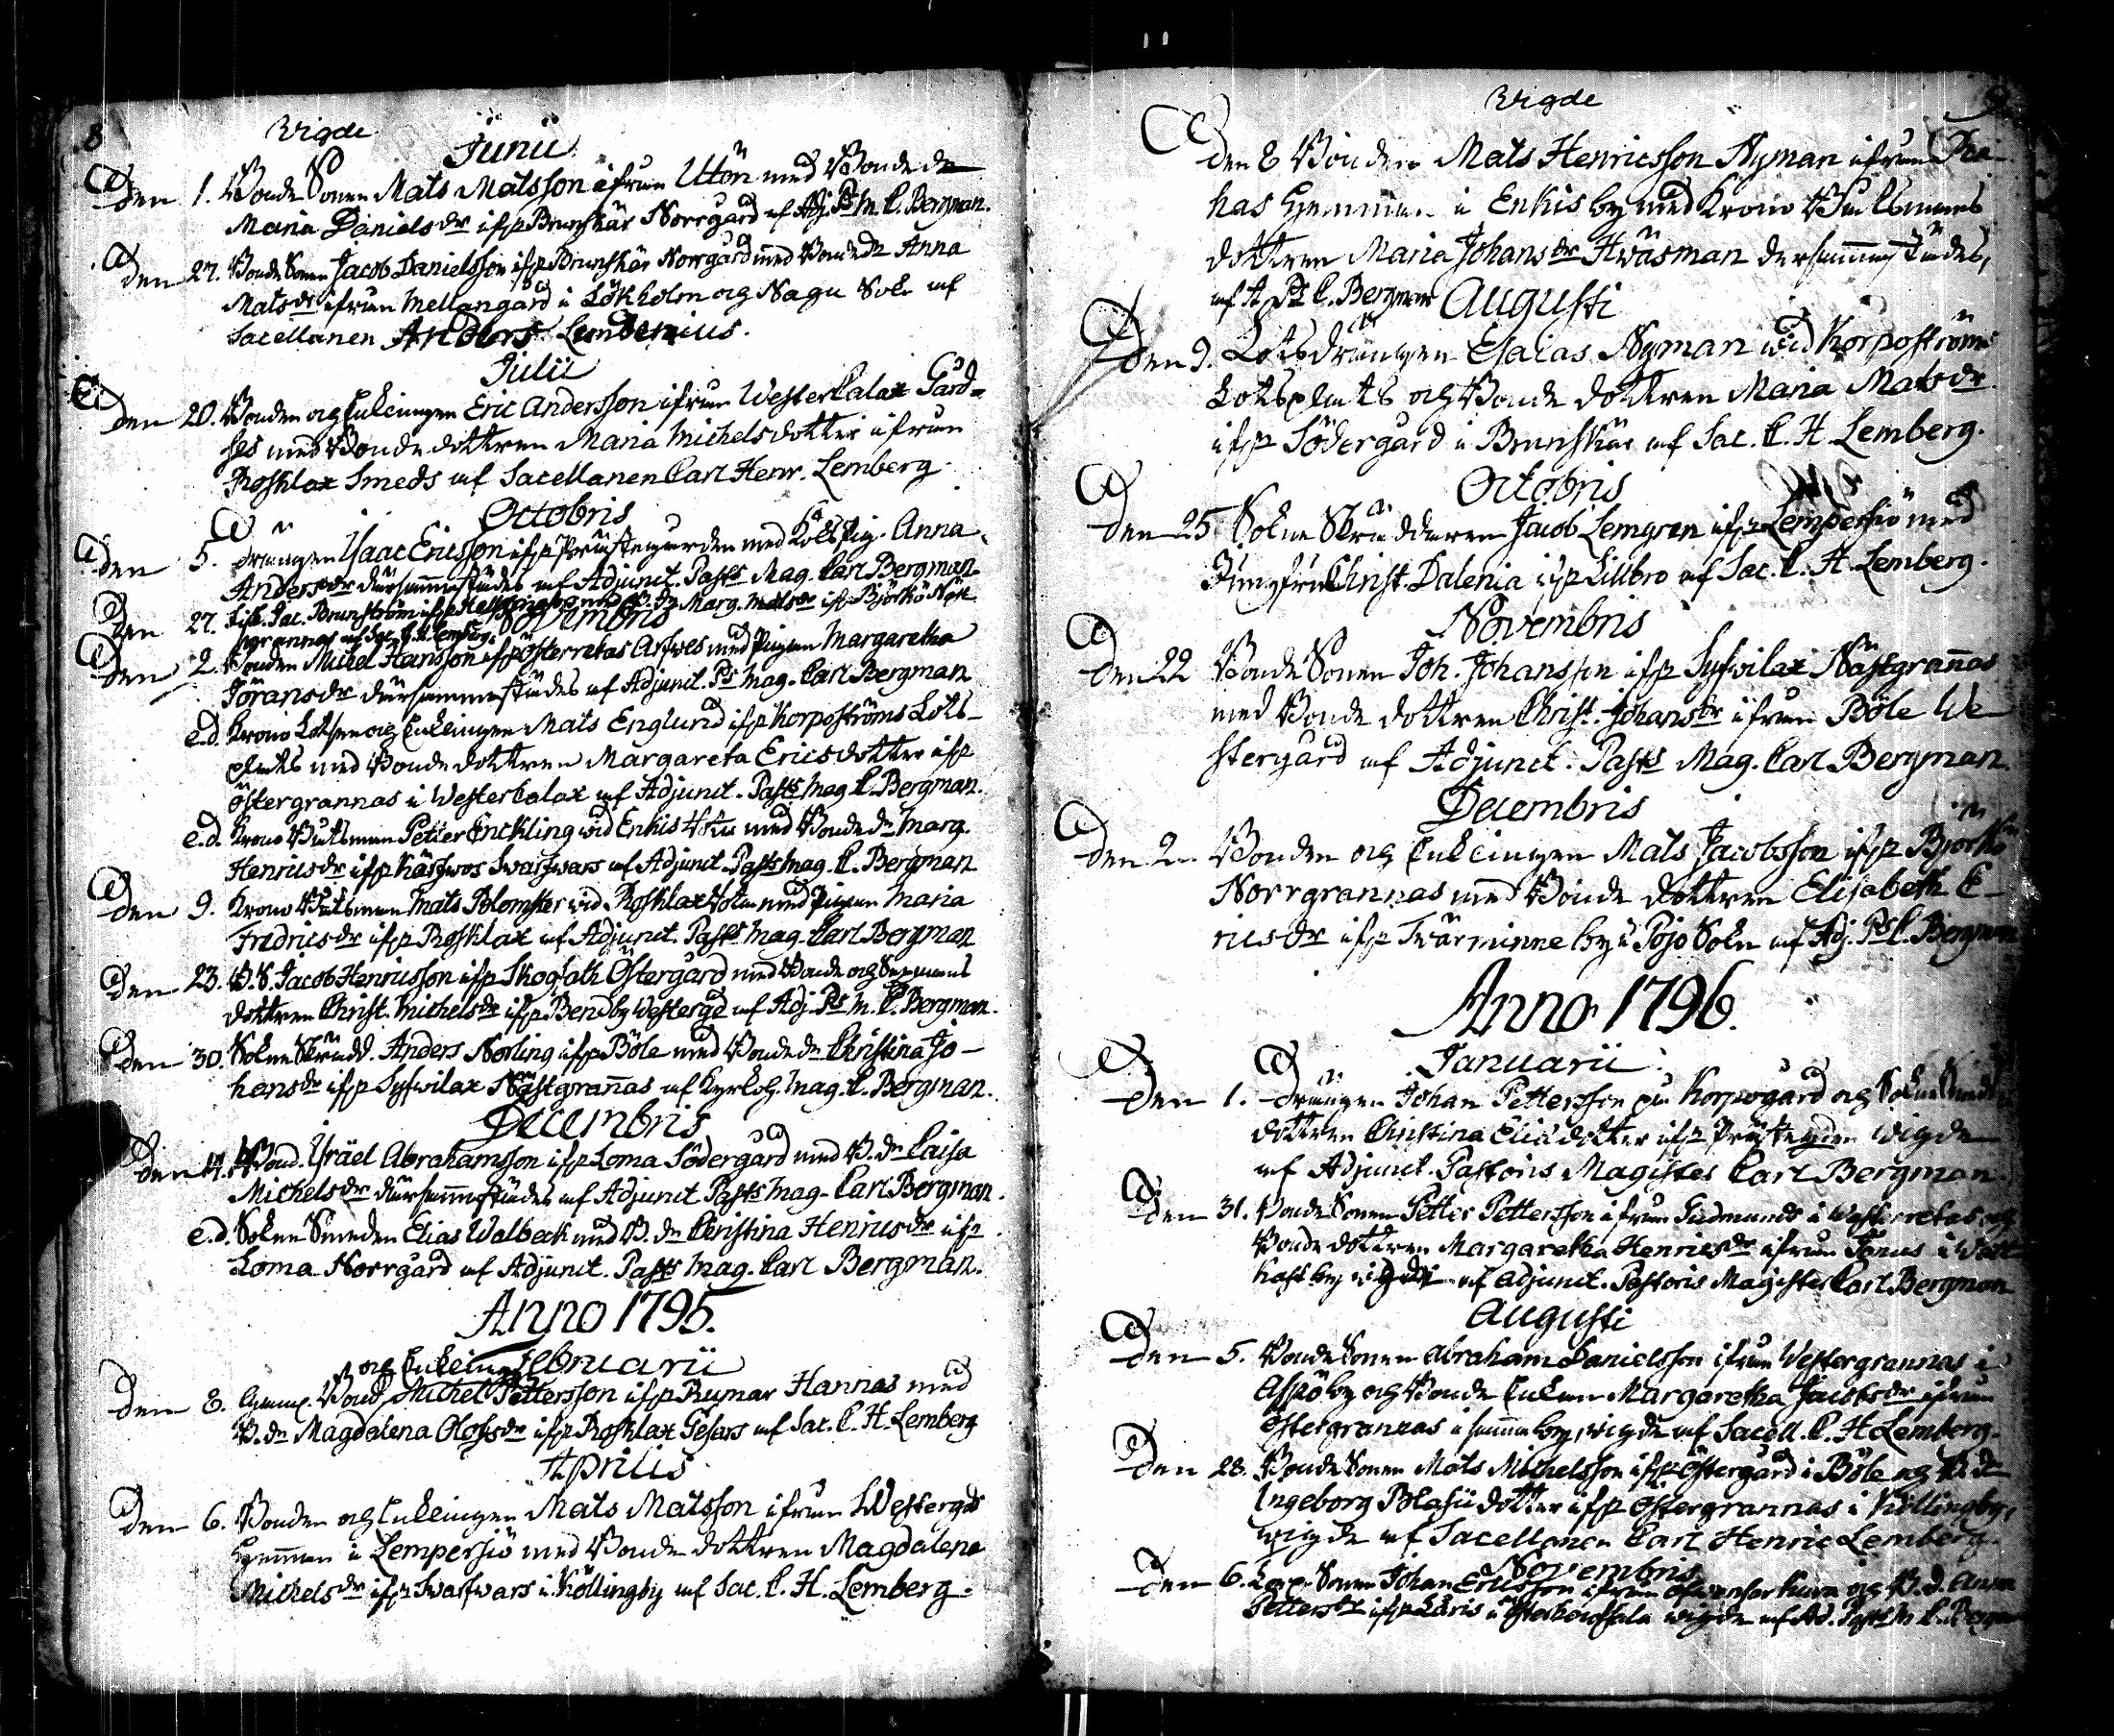 8
Wigde
Junii
Den 1. Bonde Sonen Mats Matsson ifrån Utön med Bonde dr
Maria Daniels dr ifr Brunskär Norrgård af Adj. Ps M. C. Bergman.
Den 27. Bonde Sonen Jacob Danielsson ifr Brunskär Norrgård med Bonde dr Anna
Mats dr ifrån Mellangård i Lökholm og Nagu Sokn af
Sacellanen Anders Lembenius.
Julii
Den 20. Bonden og Enklingen Eric Andersson ifrån Westerkalax Gård=
hes med Bonde dottren Maria Michelsdotter ifrån
Roshlax Smeds af Sacellanen Carl Henr. Lemberg
Octobris
Den 5. drängen Isaac Ericsson ifr Prästegården med Anna
Anders dr därsammastädes af Adjunct. Pasts Mag. Carl Bergman
Den 27. Jac. Brunström ifr med Marg. Mats dr ifr Björkö Nor
grannas af Sac. C. H. Lemberg.
Novembris
Den 2. Bonden Michel Hansson ifr Österretas Arfves med Pigan Margaretha
Görans dr därsammastädes af Adjunct. Ps Mag. Carl Bergman
e.d. Krono Lotsen og Enklingen Mats Englund ifr Korpoströms Lots-
plats med Bonde dottren Margareta Ericsdotter ifr
Östergrannas i Westerkalax af Adjunct. Pasts Mag C. Bergman.
e.d. Krono Båtsman Petter Enckling wid Enkis med Bonde dr Marg.
Henrics dr ifr af Adjunct. Pasts Mag. C. Bergman
Den 9. Krono Båtsman Mats Blomster wid Roshlax med Pigan Maria
Fredrics dr ifr Roshlax af Adjunct. Pasts Mag. Carl Bergman
Den 23. B.S. Jacob Henricsson ifr Skogfath Östergård med Bonde og
dottren Christ. Michels dr ifr Bendby Westergd af Adj. Ps M. C. Bergman.
Den 30. Sokne Skrädd. Anders Norling ifr Böle med Bonde dr Christina Jo-
hans dr ifr Syfwilax Nästgrannas af Kyrkoh. Mag. C. Bergman.
Decembris
Den 14. Bond. Israël Abrahamsson ifr Loma Södergård med B. dr Caisa
Michels dr därsammastädes af Adjunct Pasts Mag. Carl Bergman.
e.d. Sokne Smeden Elias Walbeck med B. dr Christina Henrics dr ifr
Loma Norrgård af Adjunct. Pasts Mag. Carl Bergman.
Anno 1795.
Februarii
og Enkling
Den 8. Bond. Michel Pettersson ifr Rumar Hannas med
B. dr Magdalena Olofs dr ifr Roshlax Gesars af Sac. C. H. Lemberg
Aprilis
Den 6. Bonden og Enklingen Mats Matsson ifrån Westergds
Hemman i Lempersiö med Bonde dottren Magdalena
Michels dr ifr Swarfwars i Köllingby af Sac. C. H. Lemberg.
Wigde
9
Den 8 Bonden Mats Henricsson Nyman ifrån
kas Hemman i Enkis by med Krono Båtsmans
dottren Maria Johans dr Hwäsman dersammastädes,
af A. Ps C. Bergman
Augusti
Den 9. Lotsdrängen Esaias Nyman wid Korpoströms
Lotsplats og Bonde dottren Maria Mats dr
ifr Södergård i Brunskär af Sac. C. H. Lemberg.
Octobris
Den 25 Sokne Skräddaren Jacob Lemgren ifr Lempersiö med
Jungfru Christ. Dalenia ifr Lillbro af Sac. C. H. Lemberg.
Novembris
Den 22 Bonde Sonen Joh. Johansson ifr Syfwilax Nästgrannas
med Bonde dottren Christ. Johans dr ifrån Böle We
stergård af Adjunct. Pasts Mag. Carl Bergman.
Decembris
Den 2. Bonden og Enklingen Mats Jacobsson ifr Björkö
Norrgrannas med Bonde dottren Elisabeth E-
rics dr ifr Twärminne by i Pojo Sokn af Adj. Ps C. Bergman
Anno 1796.
Januarii
Den 1. drängen Johan Pettersson på Korpogård og Sokne Smeds
dottren Christina Elis dotter ifr Prästegden wigde
af Adjunct. Pastoris Magister Carl Bergman.
Den 31. Bonde Sonen Petter Pettersson ifrån Gudmunds i Westerretas og
Bonde dottren Margaretha Henrics dr ifrån Jonas i Watt
kast by wigde af Adjunct. Pastoris Magister Carl Bergman
Augusti
Den 5. Bonde Sonen Abraham Danielsson ifrån Westergrannas i
Aspö by og Bonde Enkan Margaretha Jacobs dr ifrån
Östergrannas i samma by, wigde af Sacell. C. H. Lemberg.
Den 28. Bonde Sonen Mats Michelsson ifr Östergård i Böle og B. dr
Ingeborg Blasii dotter ifr Östergrannas i Köllingby,
wigde af Sacellanen Carl Henric Lemberg.
Novembris
Den 6. Sonen Johan Ericsson ifrån og B. d. Anna
Petters dr ifr Laris i wigde af Ad. Pasts M C. Bergman